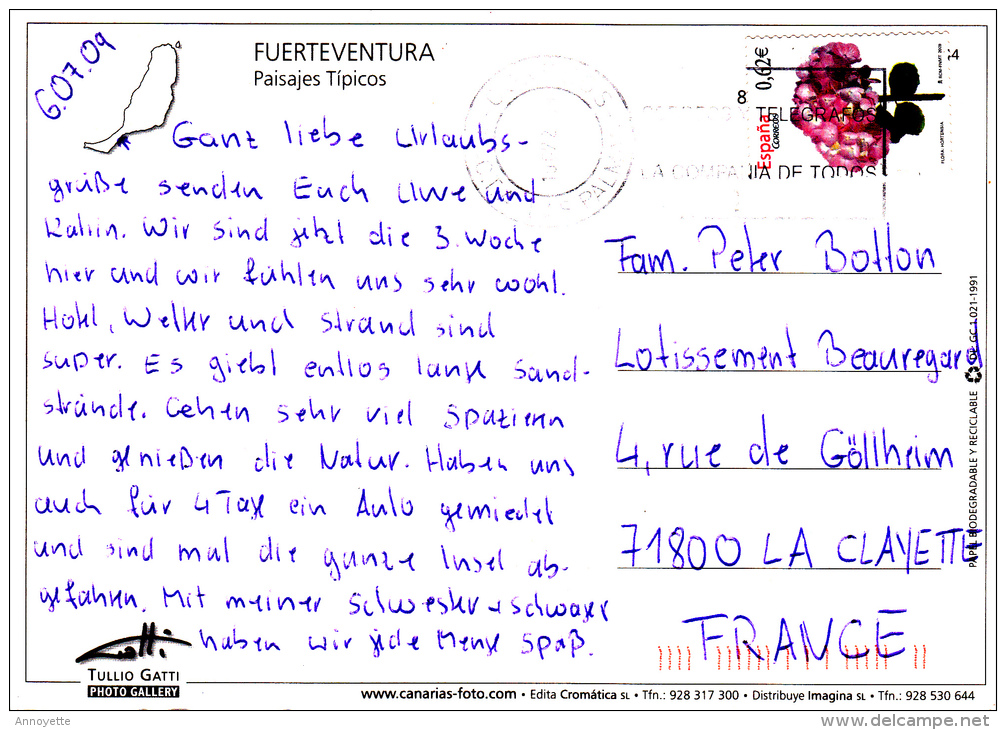 6.07.09
FUERTEVENTURA
Paisajes Típicos
Ganz liebe Urlaubs-
grüße senden Euch Uwe und
Katrin. Wir sind jetzt die 3. Woche
hier und wir fühlen uns sehr wohl.
Hotel, Wetter und Strand sind
super. Es giebt entlos lange Sand-
strände. Gehen sehr viel Spazieren
und genießen die Natur. Haben uns
auch für 4 Tage ein Auto gemietet
und sind mal die ganze Insel ab-
gefahren. Mit meiner Schwester + Schwager
haben wir jede Menge Spaß.
TULLIO GATTI
PHOTO GALLERY
España
CORREOS
0,62€
FLORA. HORTENSIA
TELEGRAFOS
LA COMPAÑIA DE TODOS
Fam. Peter Botton
Lotissement Beauregard
4, rue de Göllheim
71800 LA CLAYETTE
FRANCE
PAPEL BIODEGRADABLE Y RECICLABLE DL GC 1.021-1991
www.canarias-foto.com • Edita Cromática SL • Tfn.: 928 317 300 • Distribuye Imagina SL • Tfn.: 928 530 644
Annoyette
delcampe.net